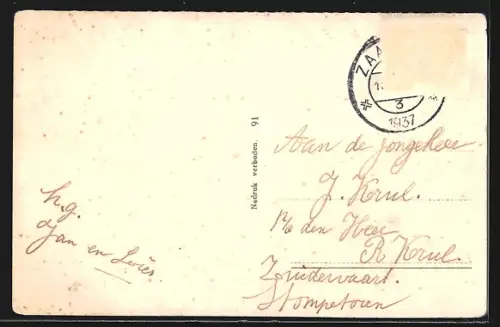 ZAA
3
1937
Nadruk verboden. 91
Aan de jongeheer
J. Krul.
p/a den Heer
R. Krul.
Zuidervaart.
Stompetoren
h.g.
Jan en